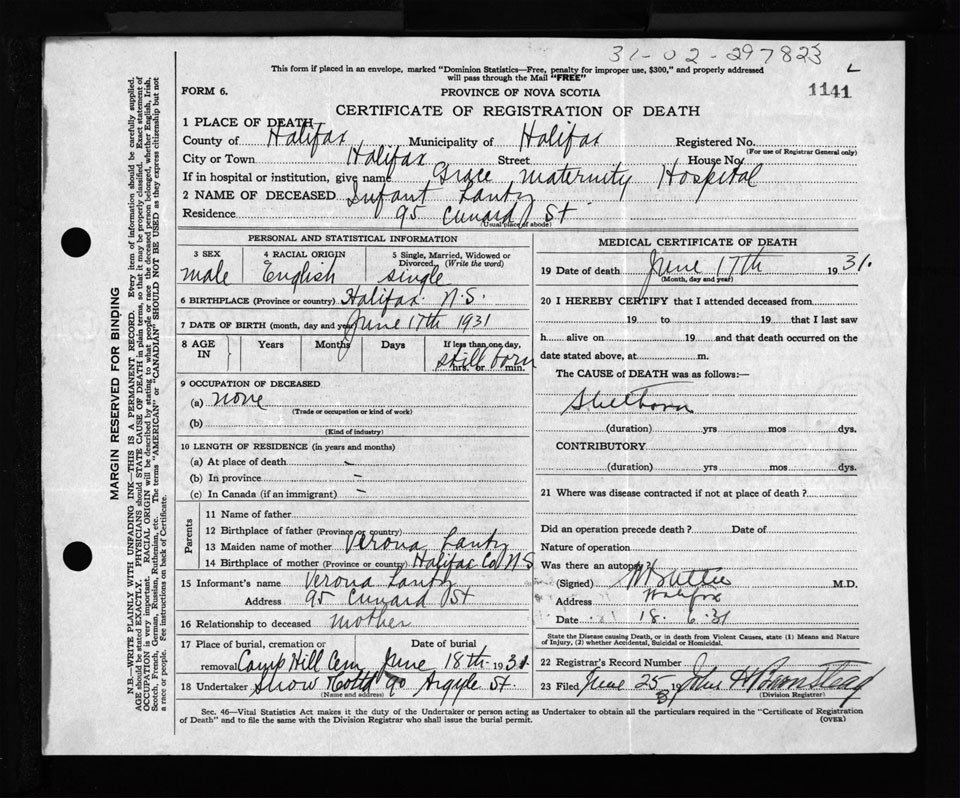 31-02-297823
This form if placed in an envelope, marked "Dominion Statistics—Free, penalty for improper use, $300," and properly addressed
will pass through the Mail "FREE"
FORM 6. PROVINCE OF NOVA SCOTIA 1141
CERTIFICATE OF REGISTRATION OF DEATH
1 PLACE OF DEATH
County of Halifax Municipality of Halifax Registered No.
(For use of Registrar General only)
City or Town Halifax Street House No.
If in hospital or institution, give name Grace Maternity Hospital
2 NAME OF DECEASED Infant Lantz
Residence 95 Cunard St
(Usual place of abode)
PERSONAL AND STATISTICAL INFORMATION
3 SEX 4 RACIAL ORIGIN 5 Single, Married, Widowed or
Divorced (Write the word)
male English single
6 BIRTHPLACE (Province or country) Halifax N.S.
7 DATE OF BIRTH (month, day and year) June 17th 1931
8 AGE IN Years Months Days If less than one day,
still born
hrs. or min.
9 OCCUPATION OF DECEASED
(a) none
(Trade or occupation or kind of work)
(b)
(Kind of industry)
10 LENGTH OF RESIDENCE (in years and months)
(a) At place of death –
(b) In province –
(c) In Canada (if an immigrant) –
Parents
11 Name of father
12 Birthplace of father (Province or country)
13 Maiden name of mother Verona Lantz
14 Birthplace of mother (Province or country) Halifax Co N S
15 Informant's name Verona Lantz
Address 95 Cunard St
16 Relationship to deceased mother
17 Place of burial, cremation or Date of burial
removal Camp Hill Cem June 18th 1931
18 Undertaker Snow & Co Ltd 90 Argyle St
(Name and address)
MEDICAL CERTIFICATE OF DEATH
19 Date of death June 17th 1931.
(Month, day and year)
20 I HEREBY CERTIFY that I attended deceased from
19 to 19 that I last saw
h alive on 19 and that death occurred on the
date stated above, at m.
The CAUSE of DEATH was as follows:—
Stillborn
(duration) yrs mos dys.
CONTRIBUTORY
(duration) yrs mos dys.
21 Where was disease contracted if not at place of death?
Did an operation precede death? Date of
Nature of operation
Was there an autopsy?
(Signed) M.D.
Address Halifax
Date 18. 6. 31
State the Disease causing Death, or in death from Violent Causes, state (1) Means and Nature
of Injury, (2) whether Accidental, Suicidal or Homicidal.
22 Registrar's Record Number
23 Filed June 25 1931
(Division Registrar)
Sec. 46—Vital Statistics Act makes it the duty of the Undertaker or person acting as Undertaker to obtain all the particulars required in the "Certificate of Registration
of Death" and to file the same with the Division Registrar who shall issue the burial permit. (OVER)
MARGIN RESERVED FOR BINDING
N.B.—WRITE PLAINLY WITH UNFADING INK—THIS IS A PERMANENT RECORD. Every item of information should be carefully supplied.
AGE should be stated EXACTLY. PHYSICIANS should STATE CAUSE OF DEATH in plain terms, so that it may be properly classified. Exact statement of
OCCUPATION is very important. RACIAL ORIGIN will be described by stating to what people or race the deceased person belonged, whether English, Irish,
Scotch, French, German, Russian, Ruthenian, etc. The terms "AMERICAN" or "CANADIAN" SHOULD NOT BE USED as they express citizenship but not
a race or people. See instructions on back of Certificate.